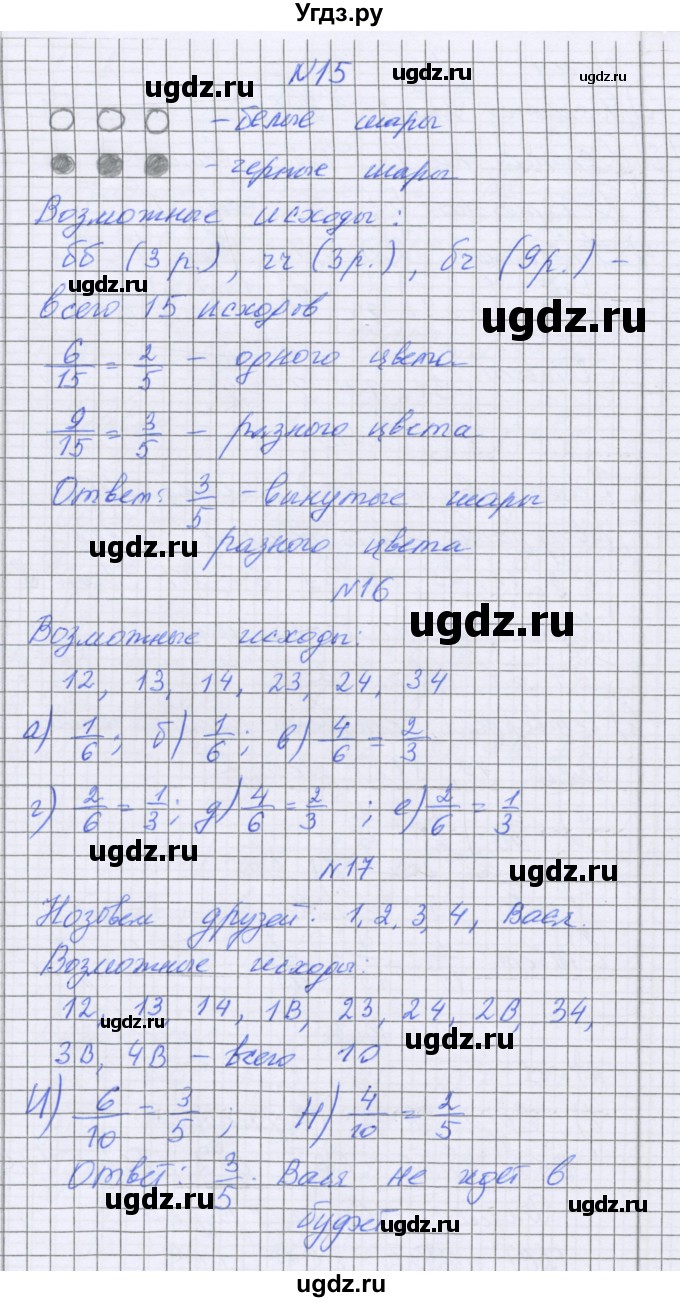 Угдз.ру
№15
ugdz.ru ugdz.ru ugdz.ru
– белые шары
– черные шары
Возможные исходы:
бб (3 р.), чч (3р.), бч (9р.) –
ugdz.ru
всего 15 исходов
ugdz.ru
6/15 = 2/5 – одного цвета
9/15 = 3/5 – разного цвета
Ответ: 3/5 – винутые шары
ugdz.ru разного цвета
№16
ugdz.ru
Возможные исходы:
12, 13, 14, 23, 24, 34
а) 1/6; б) 1/6; в) 4/6 = 2/3
г) 2/6 = 1/3; д) 4/6 = 2/3; е) 2/6 = 1/3
ugdz.ru
№17
ugdz.ru
Назовем друзей: 1, 2, 3, 4, Вася.
Возможные исходы:
12, 13, 14, 1В, 23, 24, 2В, 34,
ugdz.ru ugdz.ru
3В, 4В – всего 10
И) 6/10 = 3/5; Н) 4/10 = 2/5
Ответ: 3/5. Вася не идет в
ugdz.ru ugdz.ru
буфет
ugdz.ru
ugdz.ru